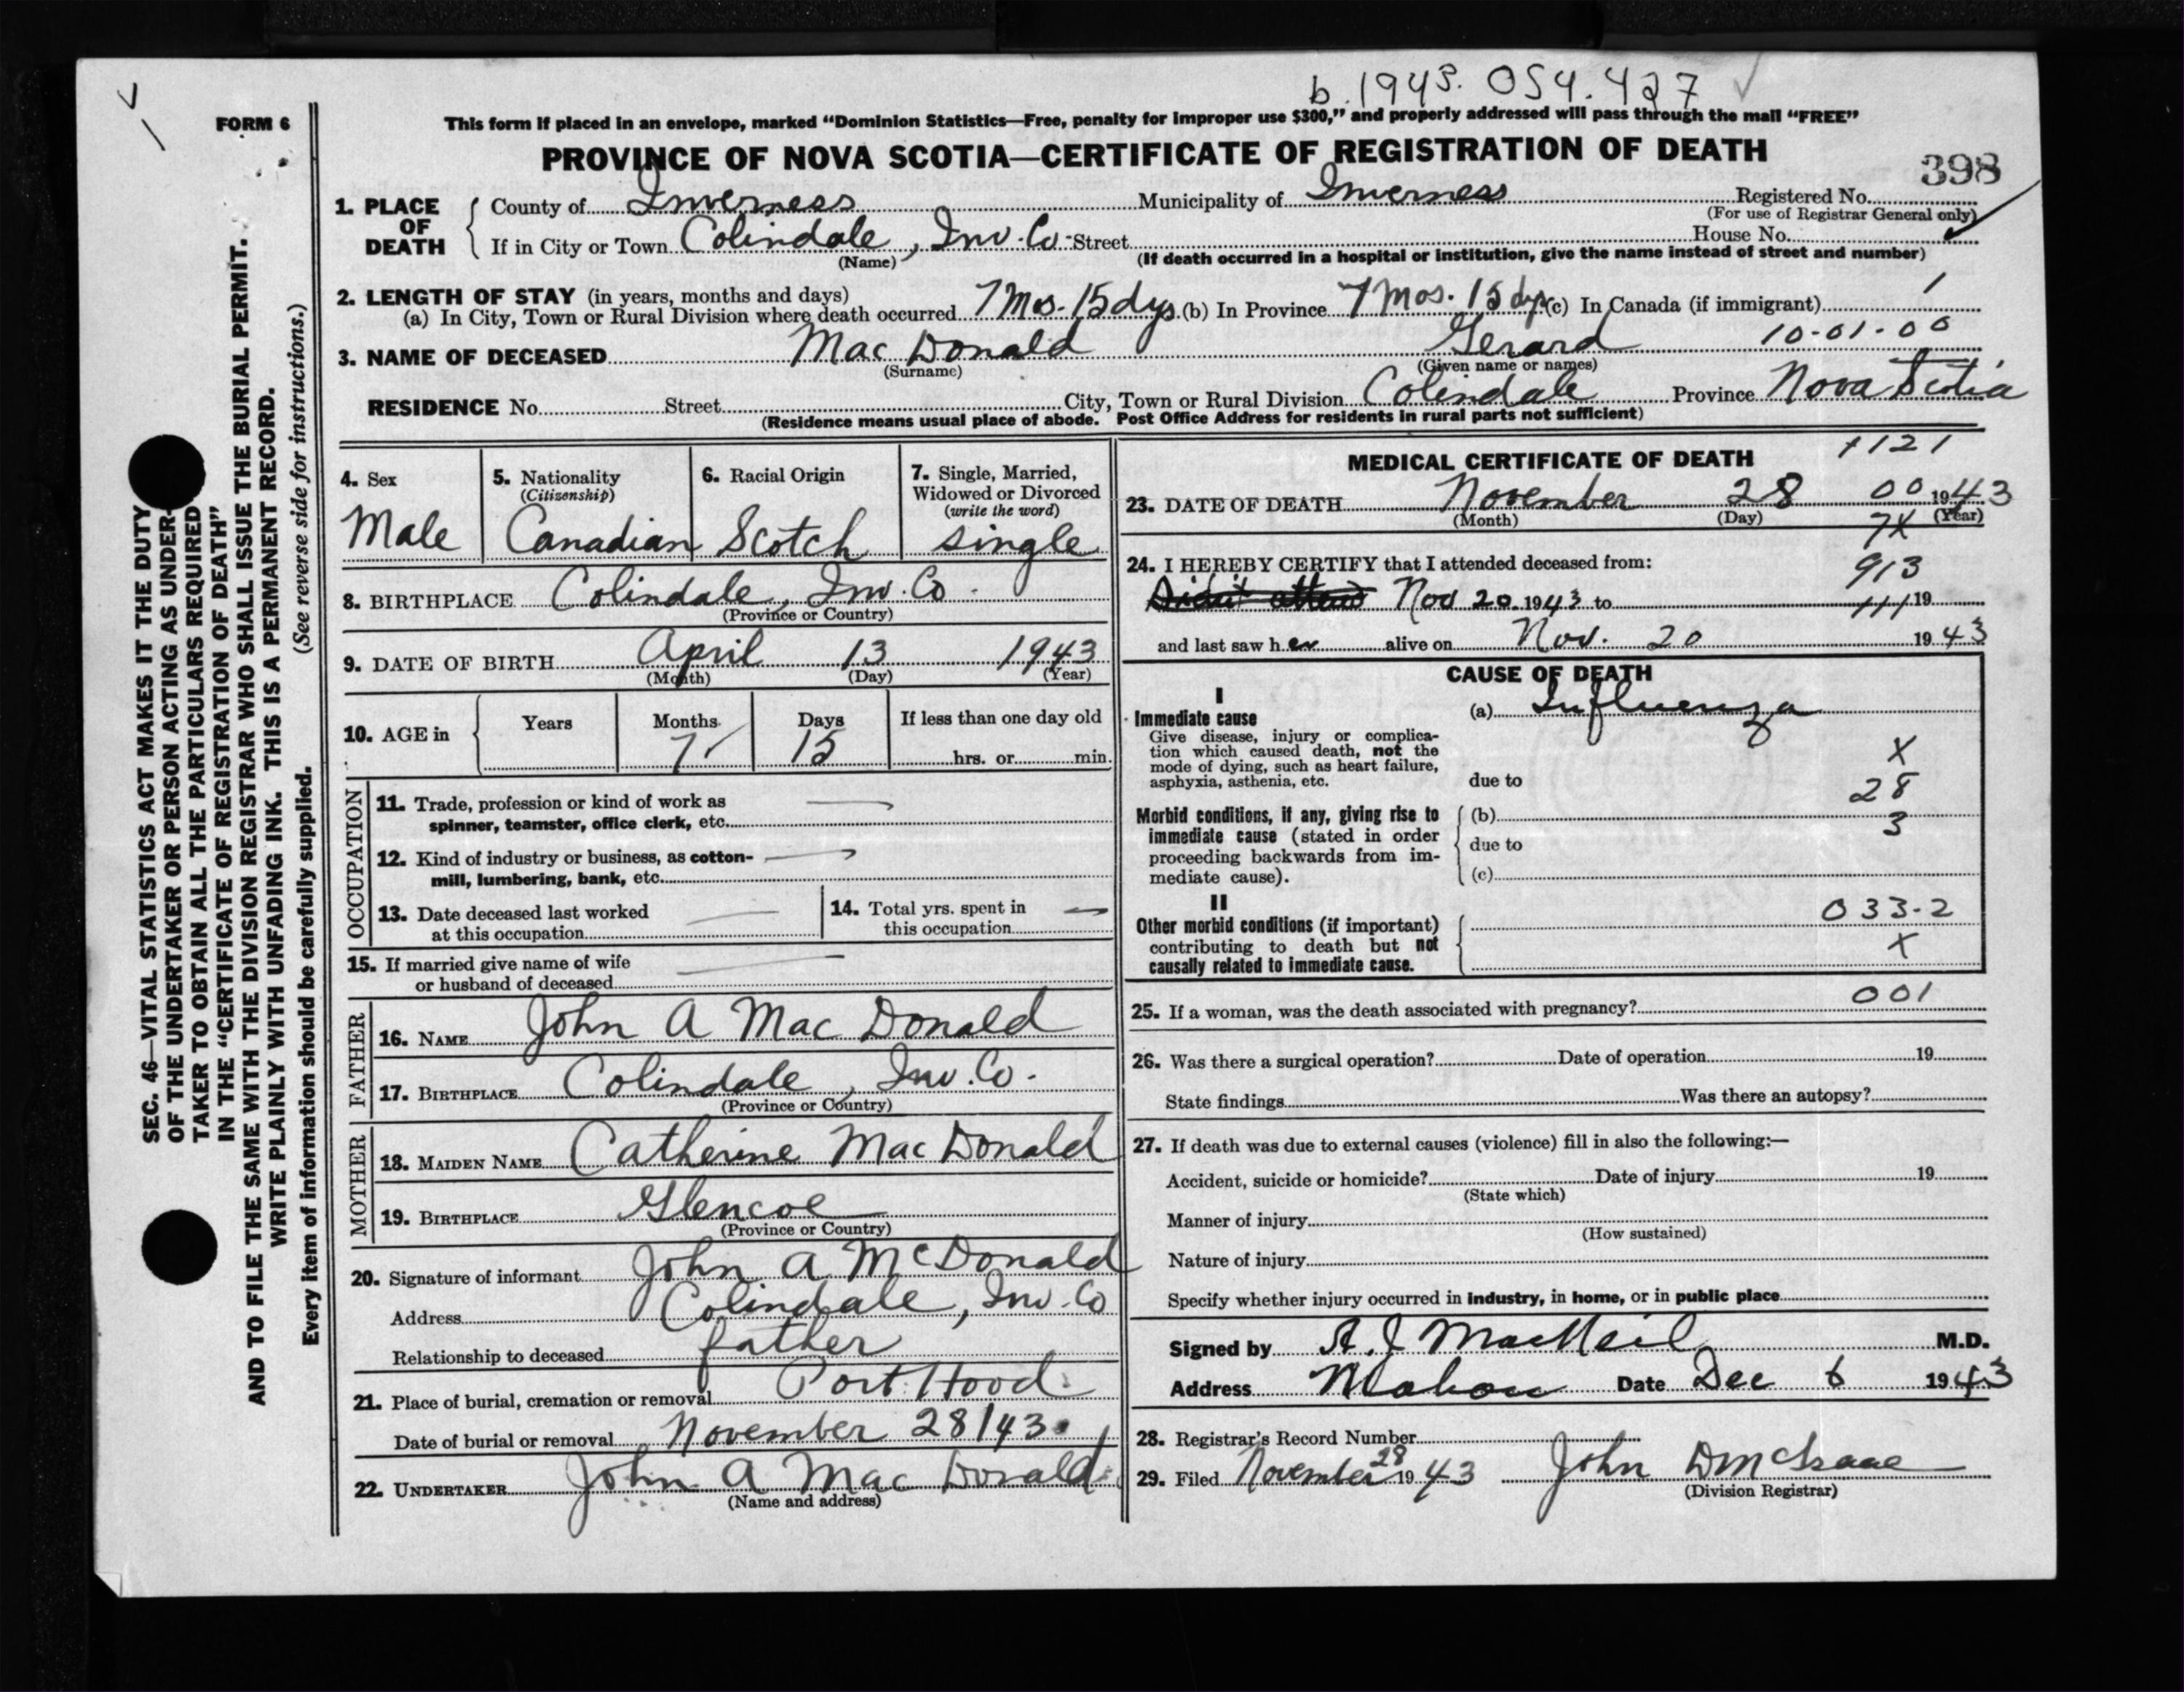 b. 1943. 054.427
FORM 6
This form if placed in an envelope, marked “Dominion Statistics—Free, penalty for improper use $300,” and properly addressed will pass through the mail “FREE”
PROVINCE OF NOVA SCOTIA—CERTIFICATE OF REGISTRATION OF DEATH
398
1. PLACE OF DEATH
County of Inverness Municipality of Inverness Registered No.
(For use of Registrar General only)
If in City or Town Colindale, Inv. Co. Street House No.
(Name) (If death occurred in a hospital or institution, give the name instead of street and number)
2. LENGTH OF STAY (in years, months and days)
(a) In City, Town or Rural Division where death occurred 7 Mos. 15 dys. (b) In Province 7 Mos. 15 dys (c) In Canada (if immigrant)
3. NAME OF DECEASED Mac Donald Gerard 10-01-00
(Surname) (Given name or names)
RESIDENCE No. Street City, Town or Rural Division Colindale Province Nova Scotia
(Residence means usual place of abode. Post Office Address for residents in rural parts not sufficient)
4. Sex
Male
5. Nationality
(Citizenship)
Canadian
6. Racial Origin
Scotch
7. Single, Married,
Widowed or Divorced
(write the word)
single
8. BIRTHPLACE Colindale, Inv. Co.
(Province or Country)
9. DATE OF BIRTH April 13 1943
(Month) (Day) (Year)
10. AGE in Years Months Days If less than one day old
7 15 hrs. or min.
OCCUPATION
11. Trade, profession or kind of work as
spinner, teamster, office clerk, etc.
12. Kind of industry or business, as cotton-
mill, lumbering, bank, etc.
13. Date deceased last worked
at this occupation
14. Total yrs. spent in
this occupation
15. If married give name of wife
or husband of deceased
FATHER
16. NAME John A Mac Donald
17. BIRTHPLACE Colindale, Inv. Co.
(Province or Country)
MOTHER
18. MAIDEN NAME Catherine Mac Donald
19. BIRTHPLACE Glencoe
(Province or Country)
20. Signature of informant John A McDonald
Address Colindale, Inv. Co
Relationship to deceased father
21. Place of burial, cremation or removal Port Hood
Date of burial or removal November 28/43
22. UNDERTAKER John A Mac Donald
(Name and address)
1121
MEDICAL CERTIFICATE OF DEATH
23. DATE OF DEATH November 28 00 1943
(Month) (Day) (Year)
7X
24. I HEREBY CERTIFY that I attended deceased from:
913
Didn't attend Nov 20 1943 to 19
111
and last saw her alive on Nov. 20 1943
CAUSE OF DEATH
I
Immediate cause
Give disease, injury or complica-
tion which caused death, not the
mode of dying, such as heart failure,
asphyxia, asthenia, etc.
(a) Influenza
X
due to
28
Morbid conditions, if any, giving rise to
immediate cause (stated in order
proceeding backwards from im-
mediate cause).
(b)
3
due to
(c)
II
Other morbid conditions (if important)
contributing to death but not
causally related to immediate cause.
033-2
X
001
25. If a woman, was the death associated with pregnancy?
26. Was there a surgical operation? Date of operation 19
State findings Was there an autopsy?
27. If death was due to external causes (violence) fill in also the following:—
Accident, suicide or homicide? Date of injury 19
(State which)
Manner of injury
(How sustained)
Nature of injury
Specify whether injury occurred in industry, in home, or in public place
Signed by A. J MacNeil M.D.
Address Mabou Date Dec 6 1943
28. Registrar's Record Number
29. Filed November 28 1943 John D McIsaac
(Division Registrar)
SEC. 46—VITAL STATISTICS ACT MAKES IT THE DUTY
OF THE UNDERTAKER OR PERSON ACTING AS UNDER-
TAKER TO OBTAIN ALL THE PARTICULARS REQUIRED
IN THE “CERTIFICATE OF REGISTRATION OF DEATH”
AND TO FILE THE SAME WITH THE DIVISION REGISTRAR WHO SHALL ISSUE THE BURIAL PERMIT.
WRITE PLAINLY WITH UNFADING INK. THIS IS A PERMANENT RECORD.
Every item of information should be carefully supplied. (See reverse side for instructions.)